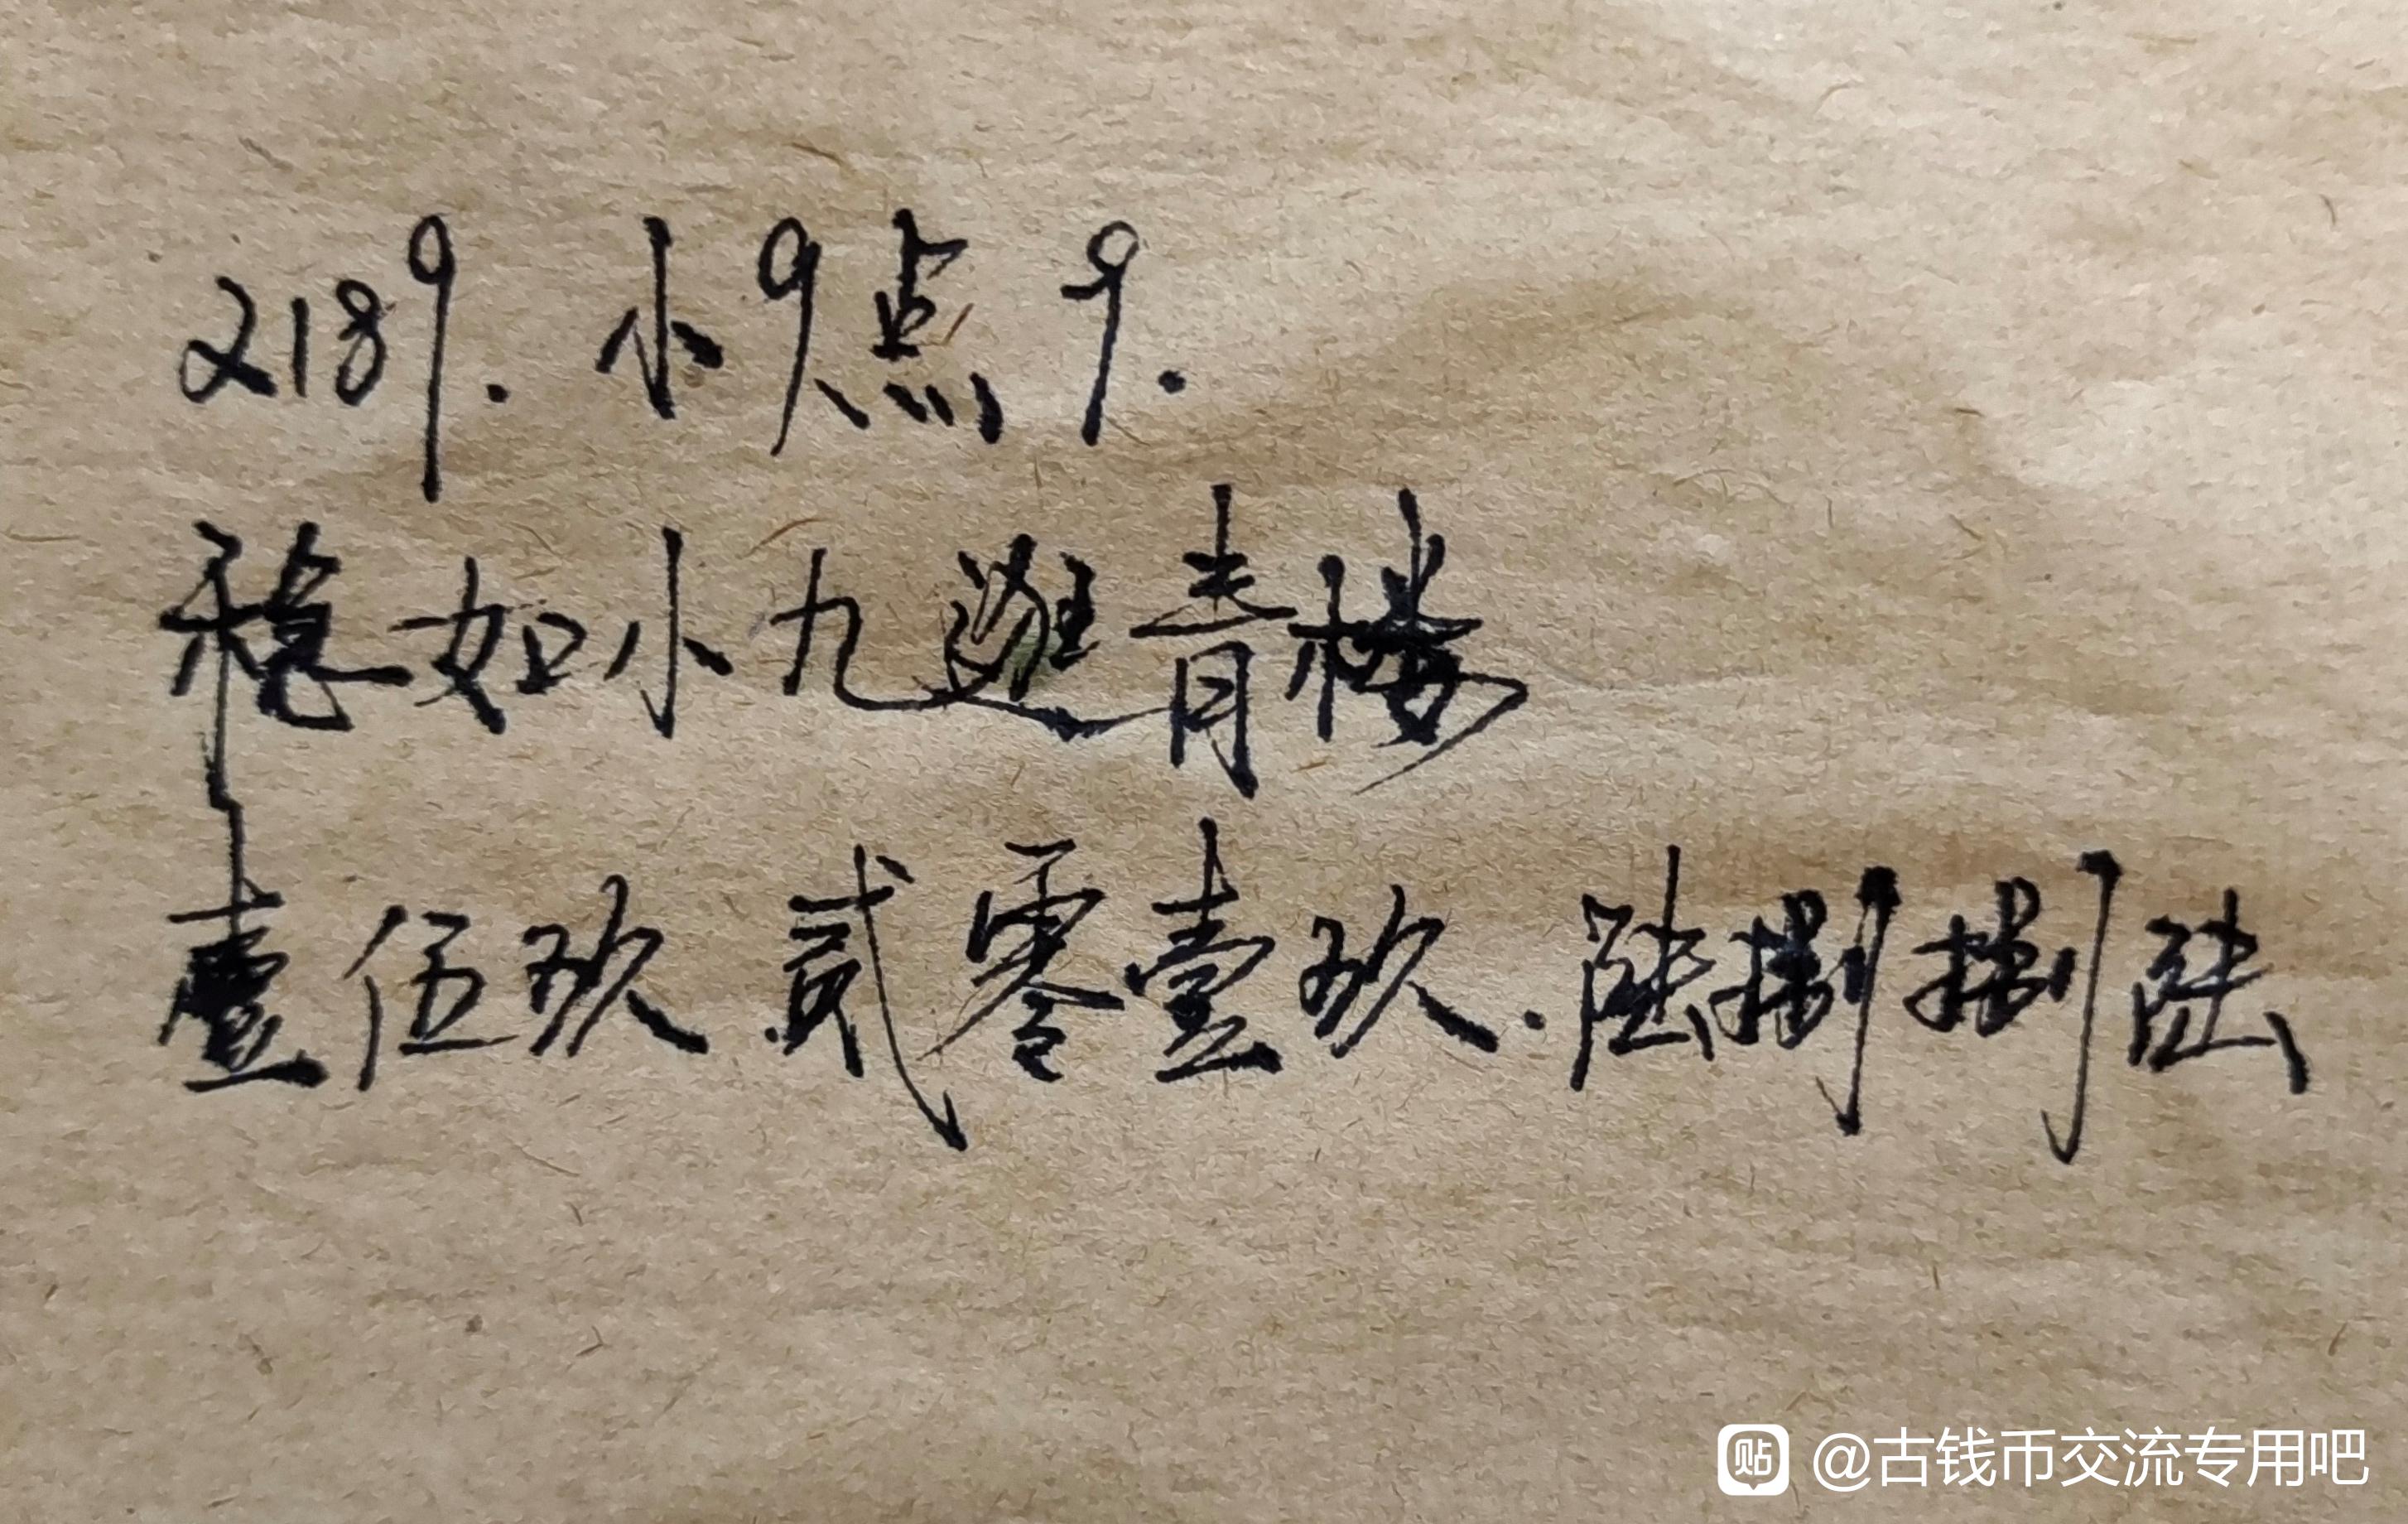 2189. 小9点9.
稳如小九逛青楼
壹伍玖 贰零壹玖. 陆捌捌陆
贴 @古钱币交流专用吧